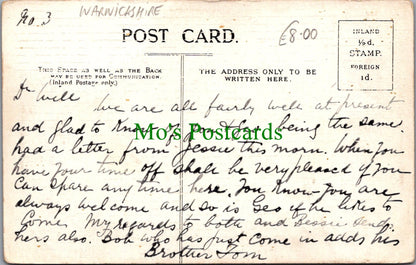 No. 3
WARWICKSHIRE
£8.00
POST CARD.
THIS SPACE AS WELL AS THE BACK
MAY BE USED FOR COMMUNICATION.
(Inland Postage only.)
THE ADDRESS ONLY TO BE
WRITTEN HERE.
INLAND
½d.
STAMP.
FOREIGN
1d.
Dr Will
We are all fairly well at present
and glad to know of you being the same.
had a letter from Jessie this morn. When you
have your time off shall be very pleased if you
can spare anytime here. You know you are
always welcome and so is Geo if he likes to
come. My regards to both and Bessie sends
hers also. Bob who has just come in adds his
Brother Tom
Mo's Postcards